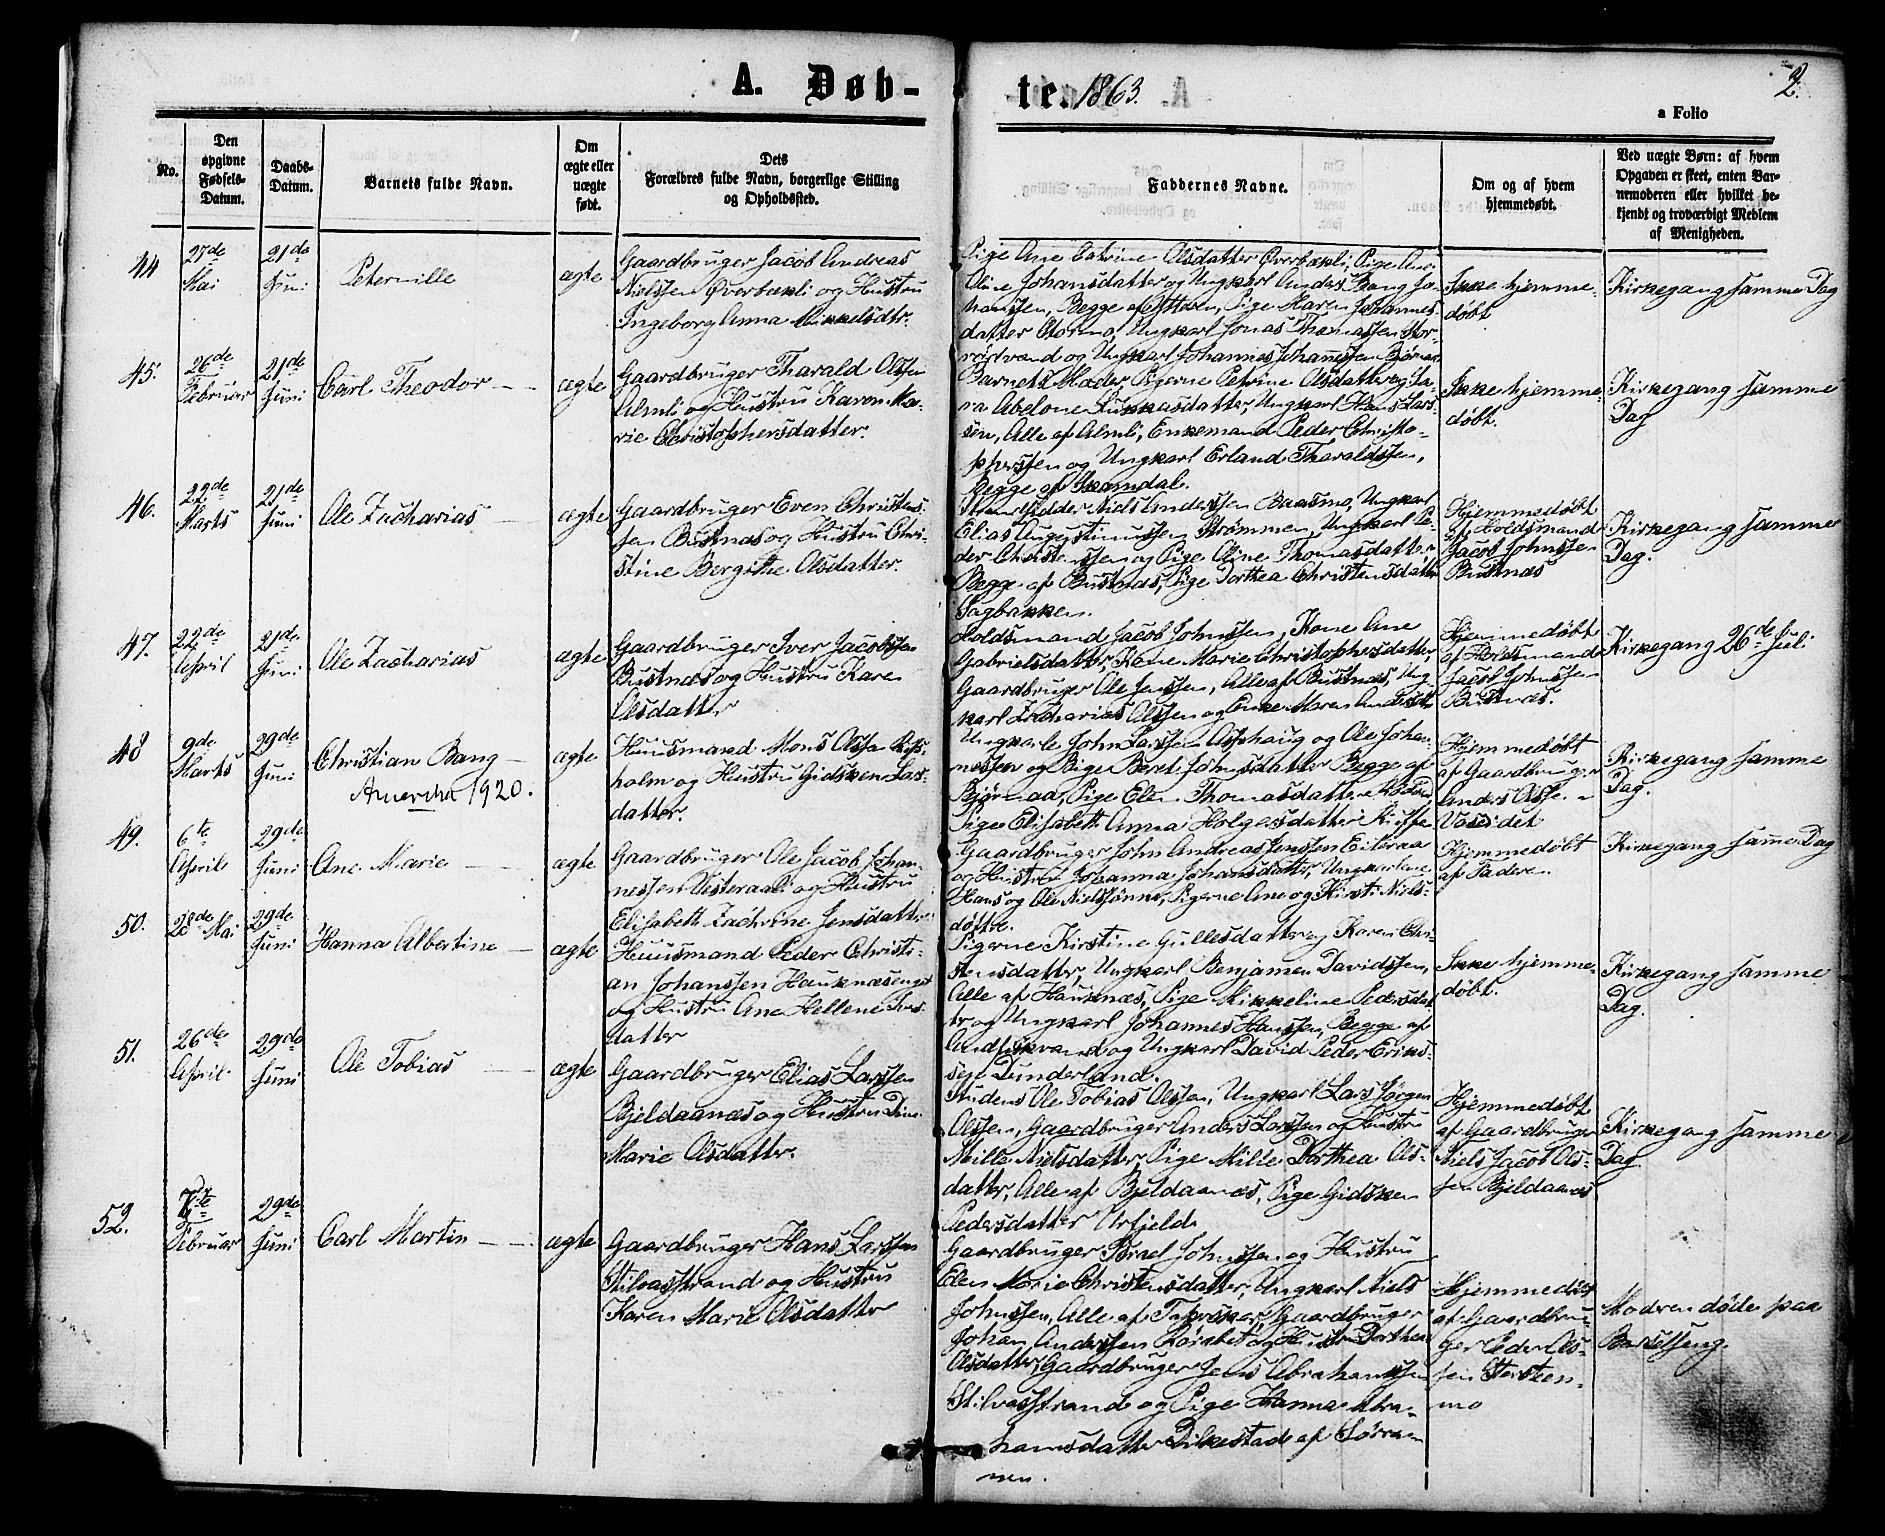 A. Døb-
te. 1863.
2.
a Folio
No.
Den
opgivne
Fødsels-
Datum.
Daabs-
Datum.
Barnets fulde Navn.
Om
ægte eller
uægte
født.
Dets
Forældres fulde Navn, borgerlige Stilling
og Opholdssted.
Faddernes Navne.
Om og af hvem
hjemmedøbt.
Ved uægte Børn: af hvem
Opgaven er skeet, enten Bar-
nemoderen eller hvilket be-
kjendt og troværdigt Medlem
af Menigheden.
44
27de
Mai
21de
Juni
Peternille
ægte
Gaardbruger Jacob Andreas
Nielssen Øverbækli og Hustru
Ingeborg Anna Mikkelsdtr.
Pige Ane Catrine Olsdatter Øverbækli, Pige Ane
Oline Johansdatter og Ungkarl Anders Bang Jo-
hanssen, Begge af Ytteren, Pige Maren Johannes-
datter Storma, Ungkarl Jonas Thomassen Stor-
vand og Ungkarl Johannes Johanssen
Ikke hjemme-
døbt.
Kirkegang samme Dag
45.
26de
Februar
21de
Juni
Carl Theodor
ægte
Gaardbruger Tharald Olssen
Almli og Hustru Karen Ma-
rie Christophersdatter.
Barnets Moder, Pigerne Petrine Olsdatter og Sa-
ra Abelone Lukkasdatter, Ungkarl Hans Lars-
sen, Alle af Almli, Enkemand Peder Christo-
phersen og Ungkarl Erland Tharaldssen,
Begge af Skamdal.
Ikke hjemme-
døbt.
Kirkegang samme
Dag
46.
22de
Marts
21de
Juni
Ole Zacharias
ægte
Gaardbruger Even Christens-
sen Bustnes og Hustru Chri-
stine Bergithe Olsdatter.
Strandsidder Niels Anderssen Baasmo, Ungkarl
Elias Augustinussen Strømmen, Ungkarl Pe-
der Christenssen og Pige Oline Thomasdatter,
Begge af Bustnes, Pige Dorthea Christensdatter
Sagbakken.
Hjemmedøbt
af Holdsmand
Jacob Johnssen
Bustnæs
Kirkegang samme
Dag.
47.
22de
April
21de
Juni
Ole Zacharias
ægte
Gaardbruger Iver Jacobssen
Bustnes og Hustru Karen
Olsdatter
Holdsmand Jacob Johnssen, Kone Ane
Gabrielsdatter, Kone Marie Christophersdatter,
Gaardbruger Ole Jenssen, Alle af Bustnæs, Ung-
karl Zacharias Olssen og Enke Maren Andersdtr
Hjemmedøbt
af Holdsmand
Jacob Johnssen
Bustnæs.
Kirkegang 26de Juli
48
9de
Marts
29de
Juni
Christian Bang
Amerika 1920.
ægte
Huusmand Mons Olssen
holm og Hustru Gidsken Lars-
datter.
Ungkarle John Larssen Asphaug og Ole Johan-
nessen og Pige Beret Johnsdatter Begge af
Bjørnaa, Pige Elen Thomasdatter
Pige Elisabeth Anna Holgersdatter
Hjemmedøbt
af Gaardbruger
Anders Olssen
Kirkegang samme
Dag.
49.
6te
April
29de
Juni
Ane Marie
ægte
Gaardbruger Ole Jacob Johan-
nessen Vesteraali og Hustru
Elisabeth Zachrine Jensdatter
Gaardbruger John Andreas Jenssen Eiteraa
og Hustru Johanna Johansdatter, Ungkarlene
Hans og Ole Nielssønner, Pigerne Ane og Kirsti Niels-
døttre.
Hjemmedøbt
af Faderen.
Kirkegang samme Dag
50.
28de Mai
29de
Juni
Hanna Albertine
ægte
Huusmand Peder Christi-
an Johanssen Hauknæsenget
og Hustru Ane Hellene
datter
Pigerne Kirstine Gullesdatter og Karen Chri-
stensdatter, Ungkarl Benjamen Davidssen,
Alle af Hauknæs, Pige Mikkeline Pedersdat-
ter og Ungkarl Johannes Hanssen, Begge af
Andfiskvand og Ungkarl David Peder Eriks-
sen Dunderland.
Ikke hjemme-
døbt.
Kirkegang samme
Dag.
51.
26de
April
29de
Juni
Ole Tobias
ægte
Gaardbruger Elias Larssen
Bjeldaanæs og Hustru Dina
Marie Olsdatter.
Students Ole Tobias Olssen, Ungkarl Lars Jørgen
Olssen, Gaardbruger Anders Larssen og Hustru
Mille Nielsdatter, Pige Mille Dorthea Ols-
datter, Alle af Bjeldaanæs, Pige Gidsken
Pedersdatter Urfjeld.
Hjemmedøbt
af Gaardbruger
Niels Jacob Ols-
sen Bjeldaanes
Kirkegang samme
Dag
52.
7de
Februar
29de
Juni
Carl Martin
ægte
Gaardbruger Hans Larssen
Stilvasstrand og Hustru
Karen Marie Olsdatter
Gaardbruger Israel Johnssen og Hustru
Elen Marie Christensdatter, Ungkarl Niels
Johnssen, Alle af Tapskar, Gaardbruger
Johan Anderssen Rørabet og Hustru Dorthea
Olsdatter, Gaardbruger Jens Abrahamssen
Stilvasstrand og Pige Hanna Abra-
hamsdatter Dilkestad af Sørra-
nen.
Hjemmedøbt
af Gaardbru-
ger Peder Ols-
sen Storsteen-
mo
Modren døde paa
Barselseng.